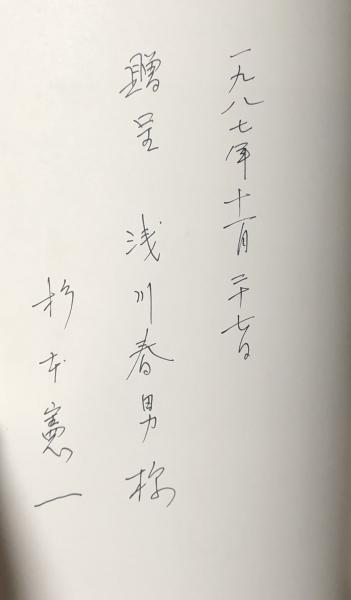 一九八七年十一月二十七日
贈呈 浅川春男様
杉本憲一